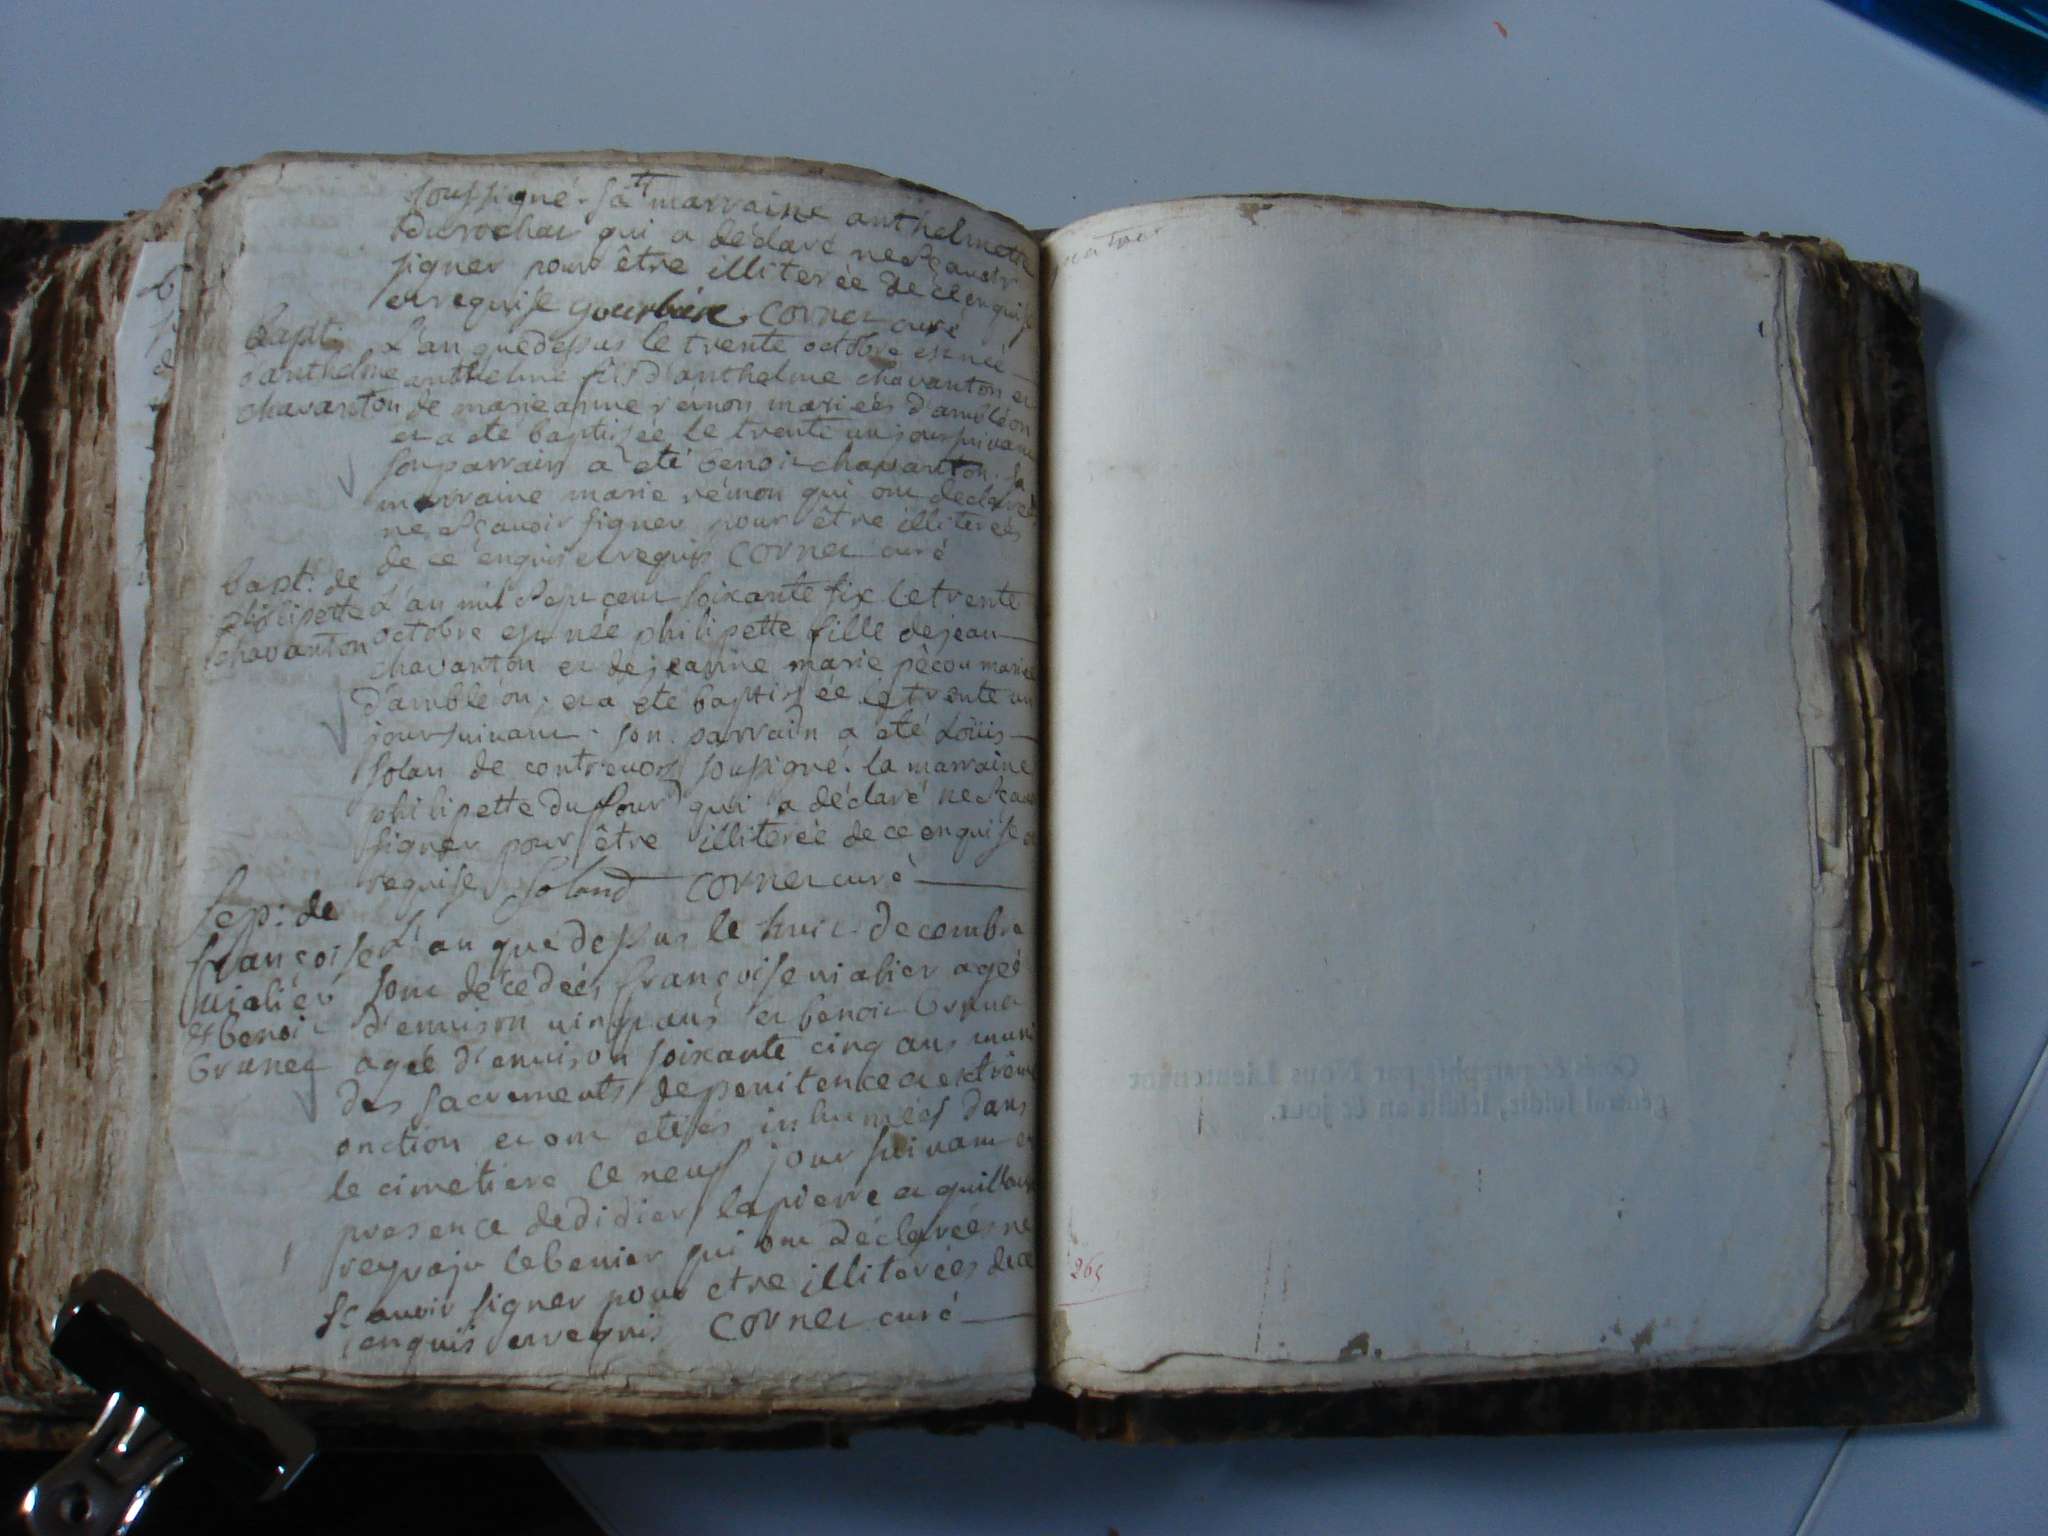 soussigné. sa marraine anthelmette
Durochat qui a déclaré ne sçavoir
signer pour être illiterée de ce enquise
et requise gourbiere. cornet curé
Bapt. L'an que dessus le trente octobre est né
d'anthelme anthelme fils d'anthelme chavanton et
chavanton de marie anne rémon mariées d'ambléon
et a eté baptisée le trente un jour suivant
son parrain a eté benoit chavanton. sa
marraine marie rémon qui ont declarées
ne sçavoir signer pour être illiterées
de ce enquis et requis cornet curé
bapt: de
philipette L'an mil sept cent soixante six le trente
chavanton octobre est née philipette fille de jean
chavanton et de jeanne marie pécou mariées
d'ambléon. et a eté baptisée le trente un
jour suivant. son parrain a eté Loüis
solan de contrevoz soussigné. la marraine
philipette Dufour qui a déclaré ne sçavoir
signer pour être illiterée de ce enquise et
requise Soland cornet curé
Sep: de
françoise L'an que dessus le huit decembre
vialier sont décedées françoise vialier ageé
et benoit d'environ vingt ans et benoit Brunet
Brunet ageé d'environ soixante cinq ans munis
des sacrements de penitence et extrême
onction et ont etées inhumées dans
le cimetiere le neuf jour suivant en
presence de didier lapierre et
qui ont déclarées ne
sçavoir signer pour etre illiterées de ce
enquis et requis cornet curé
265
Cotés & paraphés par Nous Lieutenant
général susdit, lesdits an & jour.